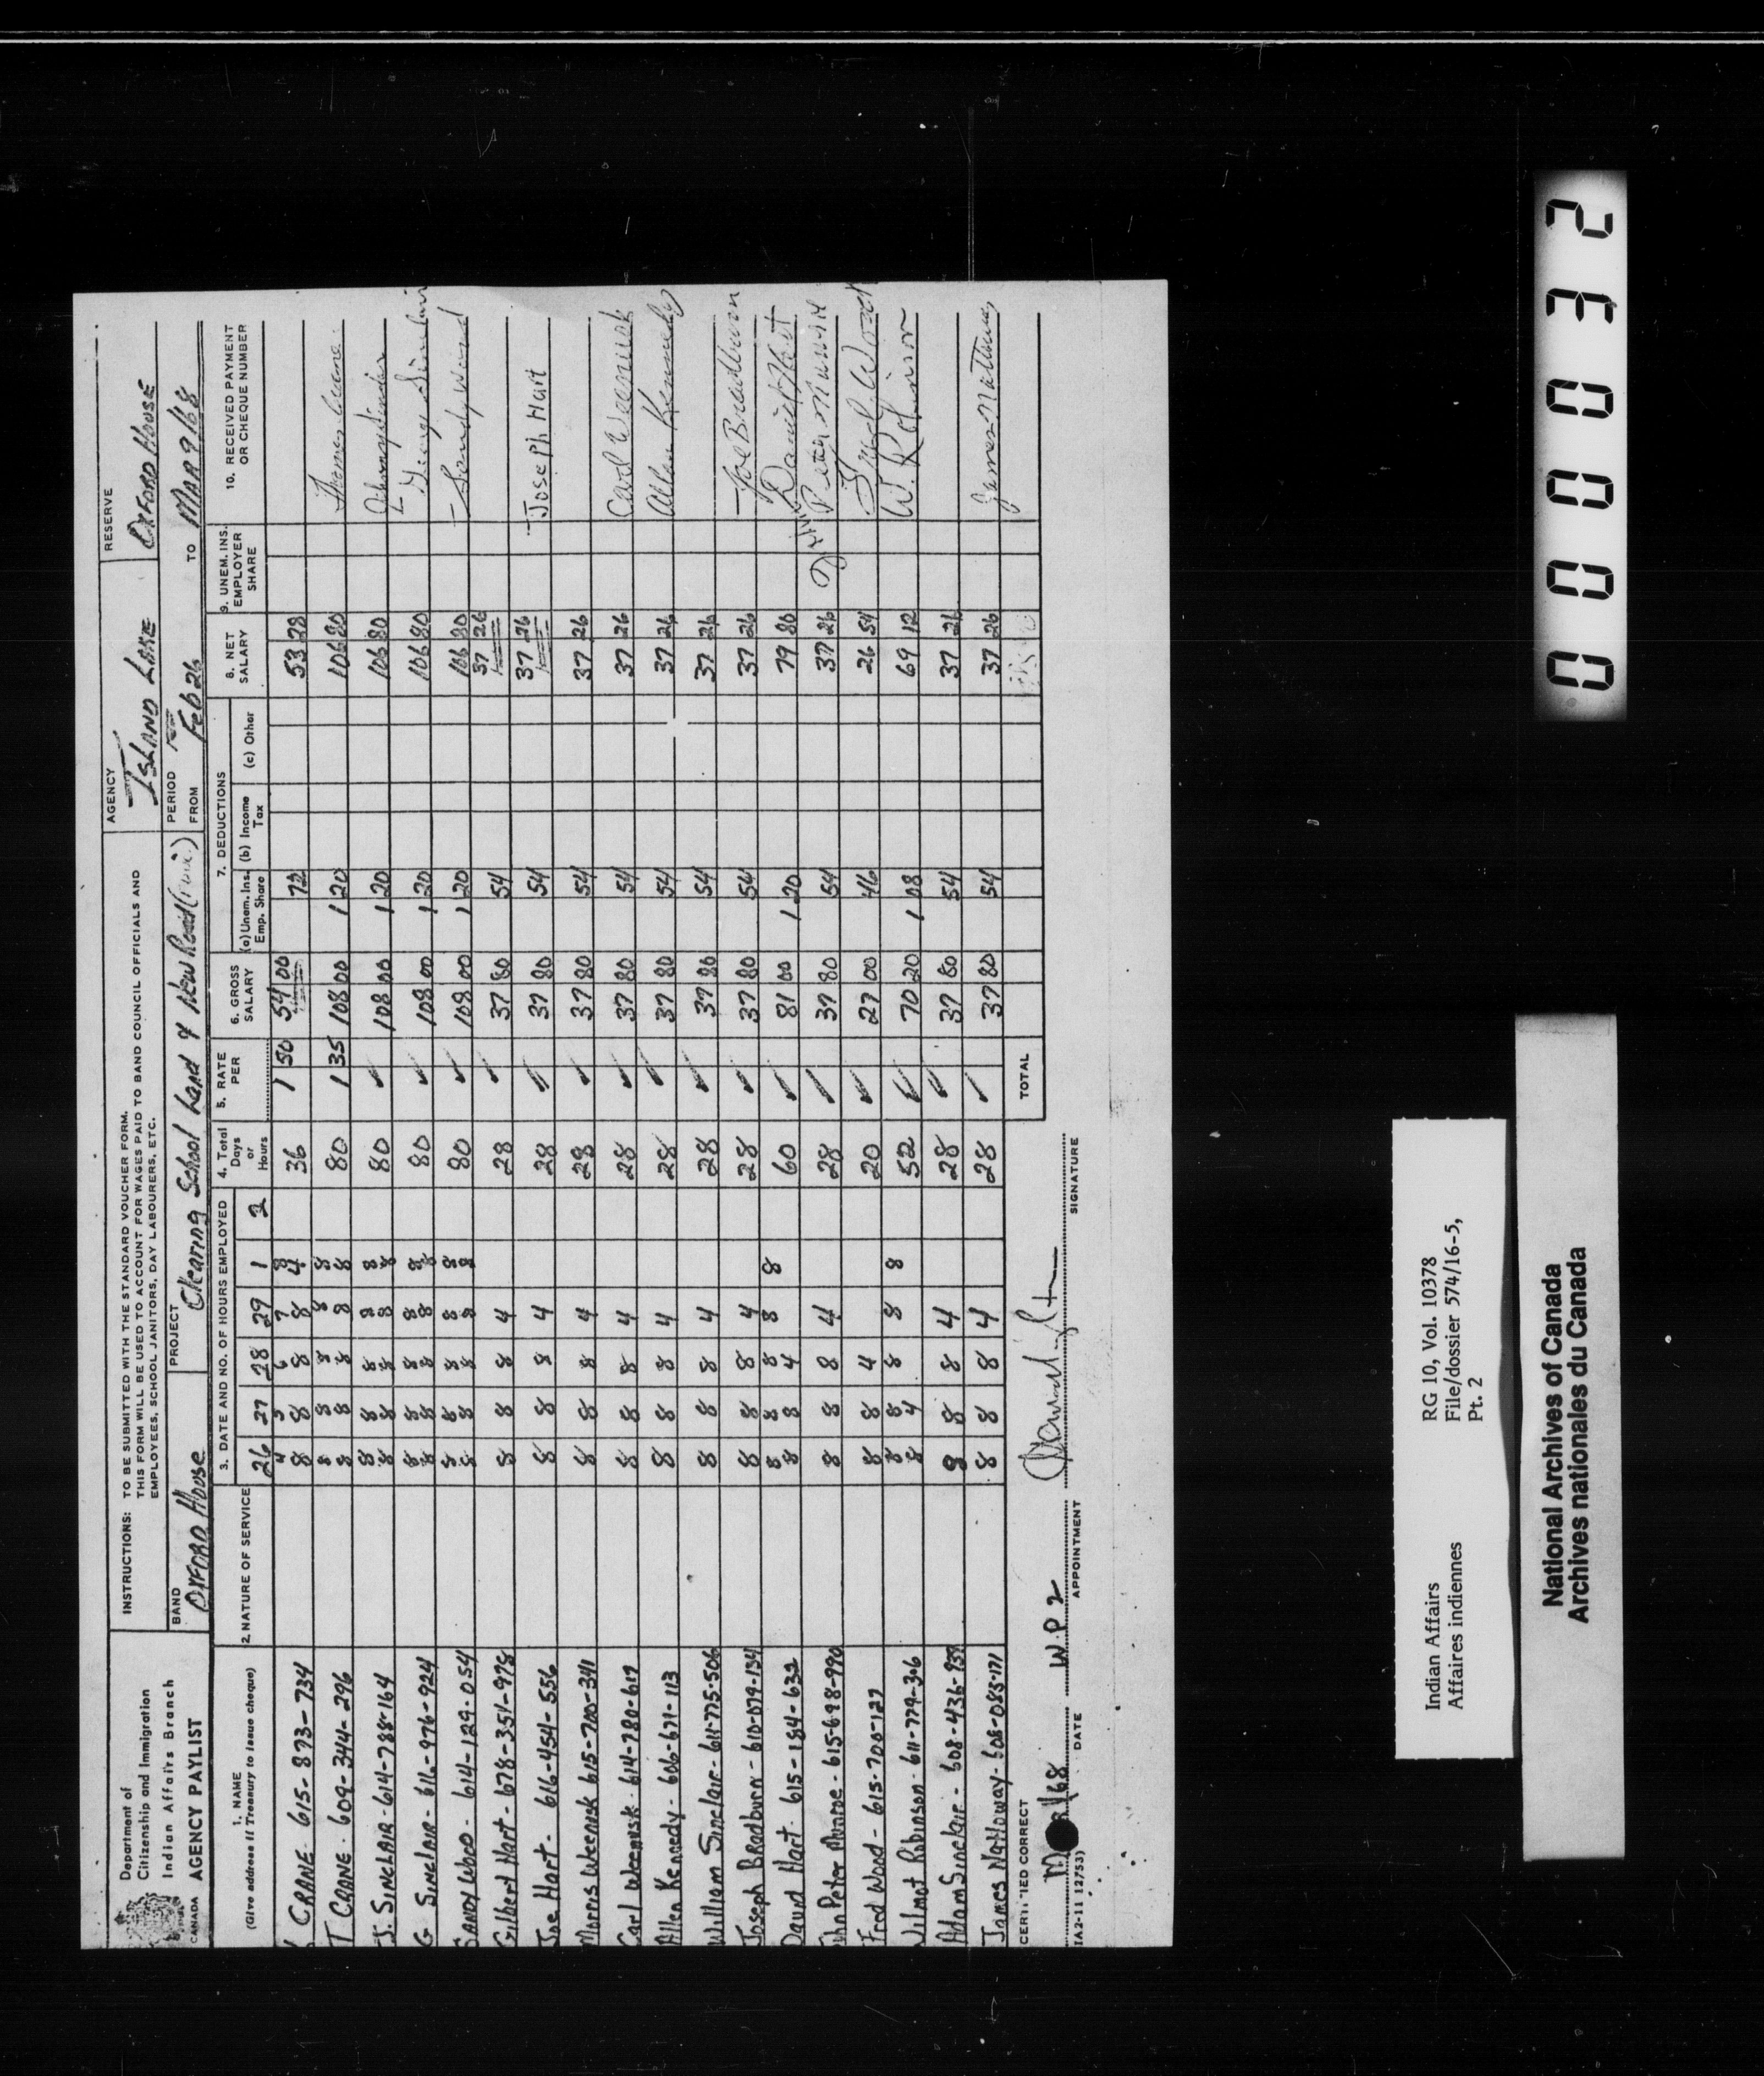 Department of
Citizenship and Immigration
Indian Affairs Branch
CANADA AGENCY PAYLIST
INSTRUCTIONS: TO BE SUBMITTED WITH THE STANDARD VOUCHER FORM.
THIS FORM WILL BE USED TO ACCOUNT FOR WAGES PAID TO BAND COUNCIL OFFICIALS AND
EMPLOYEES, SCHOOL JANITORS, DAY LABOURERS, ETC.
AGENCY
ISLAND LAKE
RESERVE
OXFORD HOUSE
BAND
OXFORD HOUSE
PROJECT
Clearing School Land & New Road
PERIOD
FROM Feb 26 TO MAR 9/68
1. NAME
(Give address if Treasury to issue cheque)
2. NATURE OF SERVICE
3. DATE AND NO. OF HOURS EMPLOYED
26 27 28 29 1 2
4. Total Days or Hours
5. RATE PER
6. GROSS SALARY
7. DEDUCTIONS
(a) Unem. Ins. Emp. Share
(b) Income Tax
(c) Other
8. NET SALARY
9. UNEM. INS. EMPLOYER SHARE
10. RECEIVED PAYMENT OR CHEQUE NUMBER
CRANE 615-873-734 4 5 6 7 8 8 8 8 8 4 36 1 50 54 00 72 53 28
T CRANE 609-344-296 8 8 8 8 8 8 8 8 8 8 80 1 35 108 00 1 20 106 80 Thomas Crane
J. SINCLAIR 614-788-164 8 8 8 8 8 8 8 8 8 8 80 ✓ 108 00 1 20 106 80
G SINCLAIR 616-976-924 8 8 8 8 8 8 8 8 8 8 80 ✓ 108 00 1 20 106 80
SANDY WOOD 614-129-054 8 8 8 8 8 8 8 8 8 8 80 ✓ 108 00 1 20 106 80 Sandy Wood
Gilbert Hart 678-351-978 8 8 8 4 28 ✓ 37 80 54 37 26
Joe Hart 616-454-556 8 8 8 4 28 ✓ 37 80 54 37 26 Joseph Hart
Morris Weenusk 615-700-341 8 8 8 4 28 ✓ 37 80 54 37 26
Carl Weenusk 614-780-617 8 8 8 4 28 ✓ 37 80 54 37 26 Carl Weenusk
Allen Kennedy 606-671-113 8 8 8 4 28 ✓ 37 80 54 37 26 Allan Kennedy
William Sinclair 611-775-506 8 8 8 4 28 ✓ 37 80 54 37 26
Joseph Bradburn 610-079-134 8 8 8 4 28 ✓ 37 80 54 37 26 Joe Bradburn
David Hart 615-184-632 8 8 8 8 8 8 8 4 60 ✓ 81 00 1 20 79 80 David Hart
John Peter Munroe 615-698-990 8 8 8 4 28 ✓ 37 80 54 37 26 Peter Munroe
Fred Wood 615-700-127 8 8 4 20 ✓ 27 00 46 26 54 Fred Wood
Wilmot Robinson 611-779-306 8 8 8 8 8 8 4 52 ✓ 70 20 1 08 69 12 W. Robinson
Adam Sinclair 608-436-939 8 8 8 4 28 ✓ 37 80 54 37 26
James Nattaway 608-083-171 8 8 8 4 28 ✓ 37 80 54 37 26
TOTAL
CERTIFIED CORRECT
/68 W.P 2
DATE APPOINTMENT SIGNATURE
IA2-11 12/53)
Indian Affairs RG 10, Vol. 10378
Affaires indiennes File/dossier 574/16-5,
Pt. 2
National Archives of Canada
Archives nationales du Canada
000032